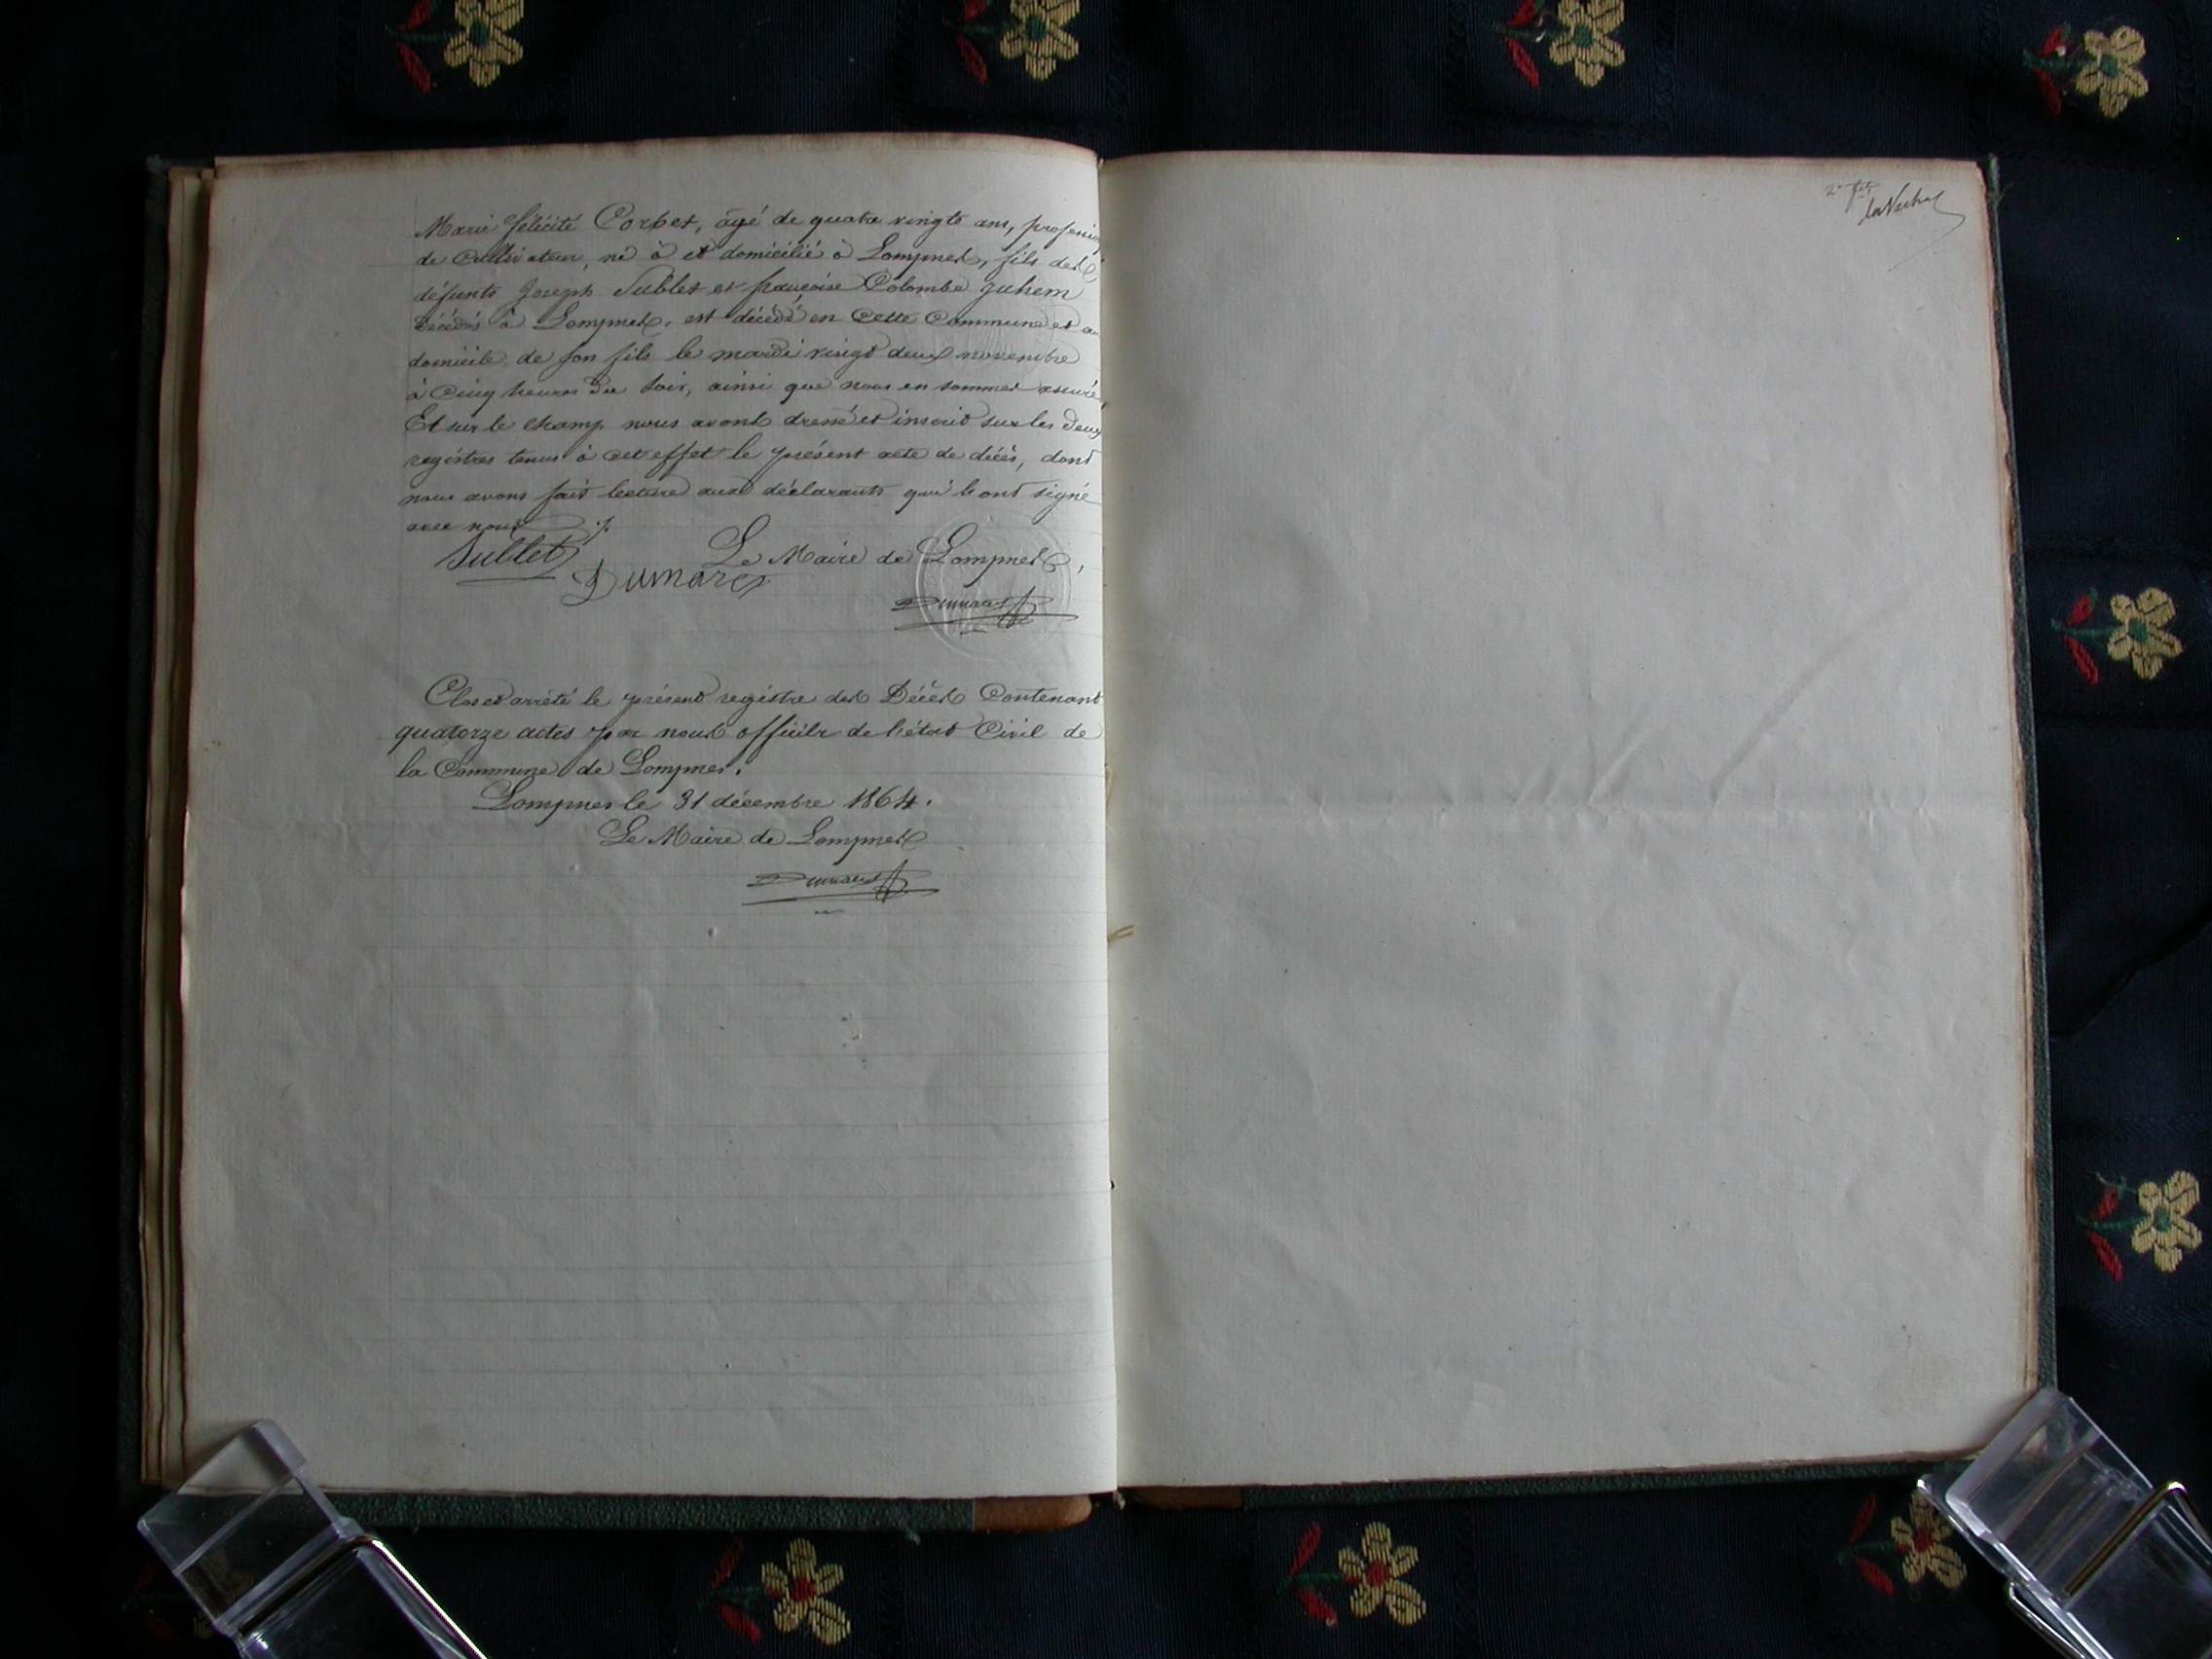 Marie félicité Corbet, âgé de quatre vingts ans, profession
de Cultivateur, né à et domicilié à Lompnes, fils des
défunts Joseph Sublet et françoise Colombe Juhem
Décédés à Lompnes, est décédé en Cette Commune et au
domicile de son fils le mardi vingt deux novembre
à Cinq heures du soir, ainsi que nous en sommes assuré,
Et sur le champ nous avons dressé et inscrit sur les deux
registres tenus à cet effet le présent acte de décès, dont
nous avons fait lecture aux déclarants qui l'ont signé
avec nous ./.
Sublet
Dumarest
Le Maire de Lompnes,
Dumarest
Clos et arrêté le présent registre des Décès Contenant
quatorze actes par nous officier de l'état Civil de
la Commune de Lompnes.
Lompnes le 31 décembre 1864.
Le Maire de Lompnes
Dumarest